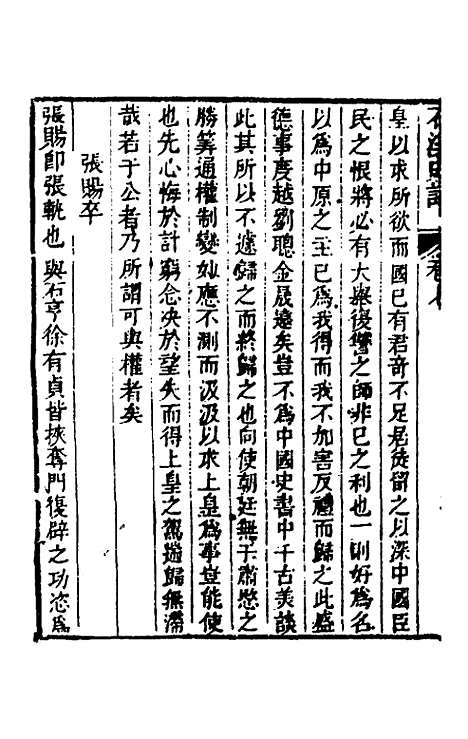 皇以求所欲而國已有君奇不足居徒留之以深中國臣
民之恨將必有大舉復讐之師非巳之利也一則好爲名
以爲中原之主已爲我得而我不加害反禮而歸之此盛
德事度越劉聰金晟遠矣豈不爲中國史書中千古美談
此其所以不遽歸之而終歸之也向使朝廷無于肅愍之
勝筭通權制變妙應不測而汲汲以求上皇爲事豈能使
也先心悔於計窮念决於望失而得上皇之駕遄歸無滯
哉若于公者乃所謂可與權者矣
張賜卒
張賜卽張軏也與石亨徐有貞皆挾奪門復辟之功恣爲